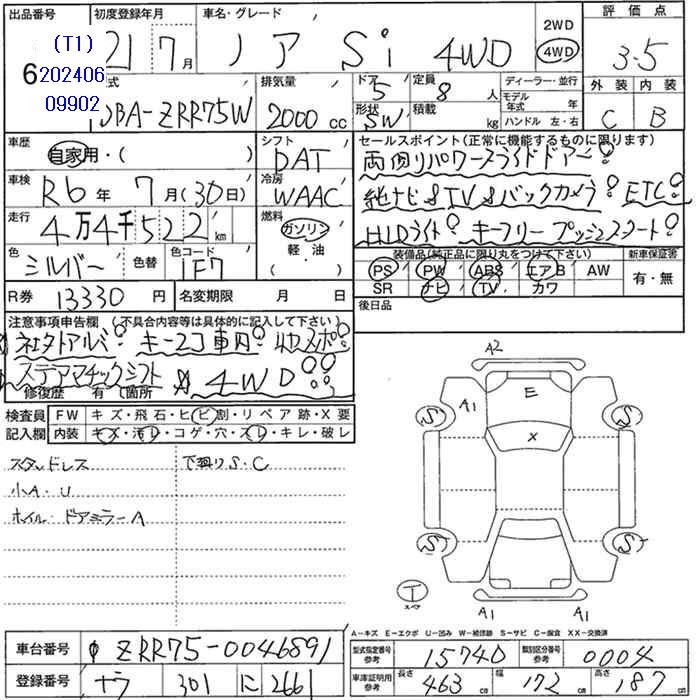 出品番号 初度登録年月 車名・グレード 評価点
(T1) 21 7月 ノア Si 4WD 2WD 4WD 3.5
6 202406
09902
型式 排気量 ドア 定員 ディーラー・並行 外装 内装
DBA-ZRR75W 2000cc 5 8人 モデル年式 年 C B
形状 SW 積載 kg ハンドル 左・右
車歴 シフト セールスポイント(正常に機能するものに限ります)
自家用・( ) DAT 両側パワースライドドアー!
車検 R6年 7月(30日) 冷房 WAAC 純ナビ&TV&バックカメラ! ETC!
走行 4万4千522km 燃料 ガソリン HIDライト! キーフリー プッシュスタート!
軽油
( )
色 シルバー 色替 色コード 1F7 装備品(純正品に限り丸をつけて下さい) 新車保証書
PS PW ABS エアB AW 有・無
SR ナビ TV カワ
R券 13330円 名変期限 月 日 後日品
注意事項申告欄(不具合内容等は具体的に記入して下さい)
社外アルミ! キー2コ車内!
ステアマチックシフト ☆4WD!!
修復歴 有( )箇所
検査員 FW キズ・飛石・ヒビ割・リペア跡・X要
記入欄 内装 キズ・汚レ・コゲ・穴・スレ・キレ・破レ
スタッドレス 下廻りS・C
小A・U
ホイル・ドアミラーA
A2
A1 E
S S
X
S S
T
スペア
A1 A1
A-キズ E-エクボ U-凹み W-補修跡 S-サビ C-腐食 XX-交換済
車台番号 ZRR75-0046891 型式指定番号 参考 15740 類別区分番号 参考 0004
登録番号 301 に 2661 車庫証明用 参考 長さ 463cm 幅 172cm 高さ 187cm